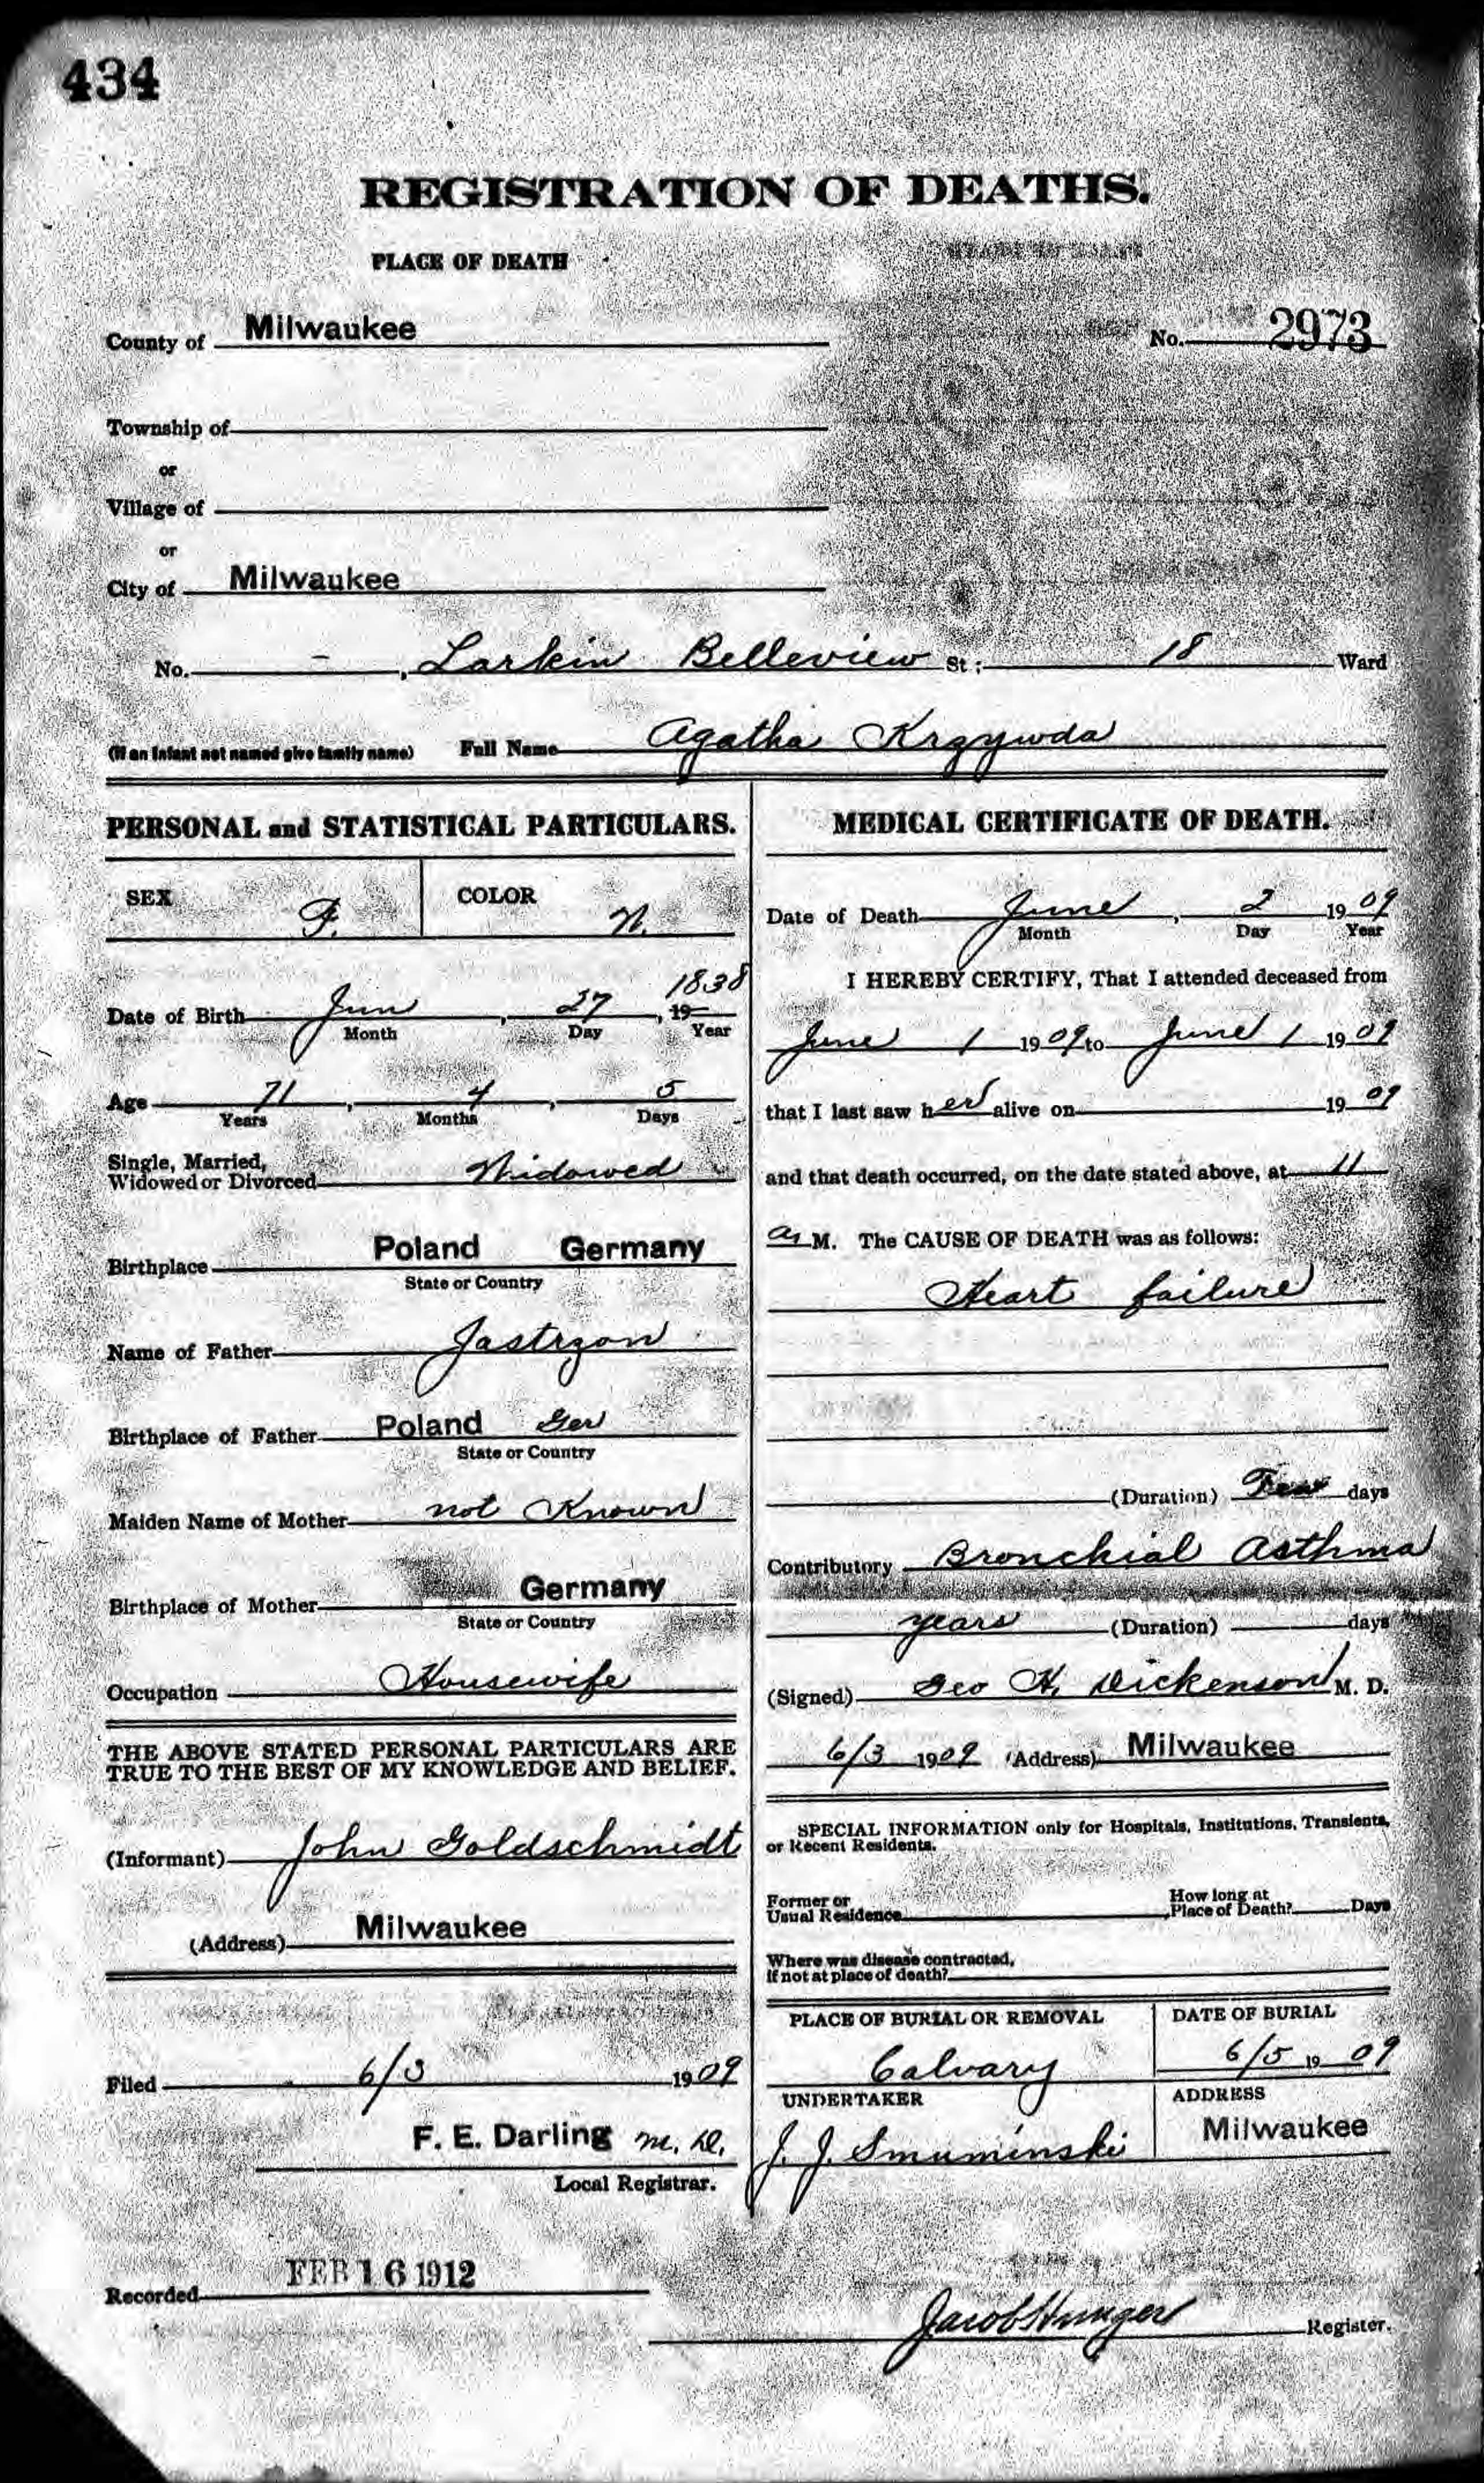 434
REGISTRATION OF DEATHS.
PLACE OF DEATH
County of Milwaukee
No. 2973
Township of
or
Village of
or
City of Milwaukee
No. - , Larkin Belleview St ; 18 Ward
(If an infant not named give family name) Full Name Agatha Krzywda
PERSONAL and STATISTICAL PARTICULARS.
SEX F. COLOR W.
Date of Birth Jun , 27 , 19 1838
Month Day Year
Age 71 , 4 , 5
Years Months Days
Single, Married,
Widowed or Divorced Widowed
Birthplace Poland Germany
State or Country
Name of Father Jastrzon
Birthplace of Father Poland Ger
State or Country
Maiden Name of Mother not Known
Birthplace of Mother Germany
State or Country
Occupation Housewife
THE ABOVE STATED PERSONAL PARTICULARS ARE
TRUE TO THE BEST OF MY KNOWLEDGE AND BELIEF.
(Informant) John Goldschmidt
(Address) Milwaukee
Filed 6/3 1909
F. E. Darling M. D.
Local Registrar.
MEDICAL CERTIFICATE OF DEATH.
Date of Death June , 2 1909
Month Day Year
I HEREBY CERTIFY, That I attended deceased from
June 1 1909 to June 1 1909
that I last saw her alive on 1909
and that death occurred, on the date stated above, at 11
a. M. The CAUSE OF DEATH was as follows:
Heart failure
(Duration) Few days
Contributory Bronchial Asthma
years (Duration) days
(Signed) Geo H. Dickenson M. D.
6/3 1909 (Address) Milwaukee
SPECIAL INFORMATION only for Hospitals, Institutions, Transients,
or Recent Residents.
Former or
Usual Residence
How long at
Place of Death? Days
Where was disease contracted,
if not at place of death?
PLACE OF BURIAL OR REMOVAL DATE OF BURIAL
Calvary 6/5 1909
UNDERTAKER ADDRESS
J. J. Smuminski Milwaukee
Recorded FEB 16 1912
Jacob Register.